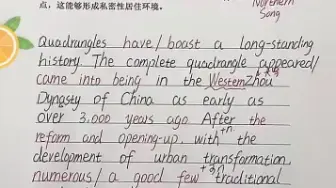 点，这能够形成私密性居住环境。
Northern
Song
Quadrangles have/boast a long-standing
history. The complete quadrangle appeared/
came into being in the Western Zhou
Dynasty of China as early as
over 3,000 years ago After the
reform and opening-up, with the +n.
development of urban transformation,
numerous/ a good few traditional